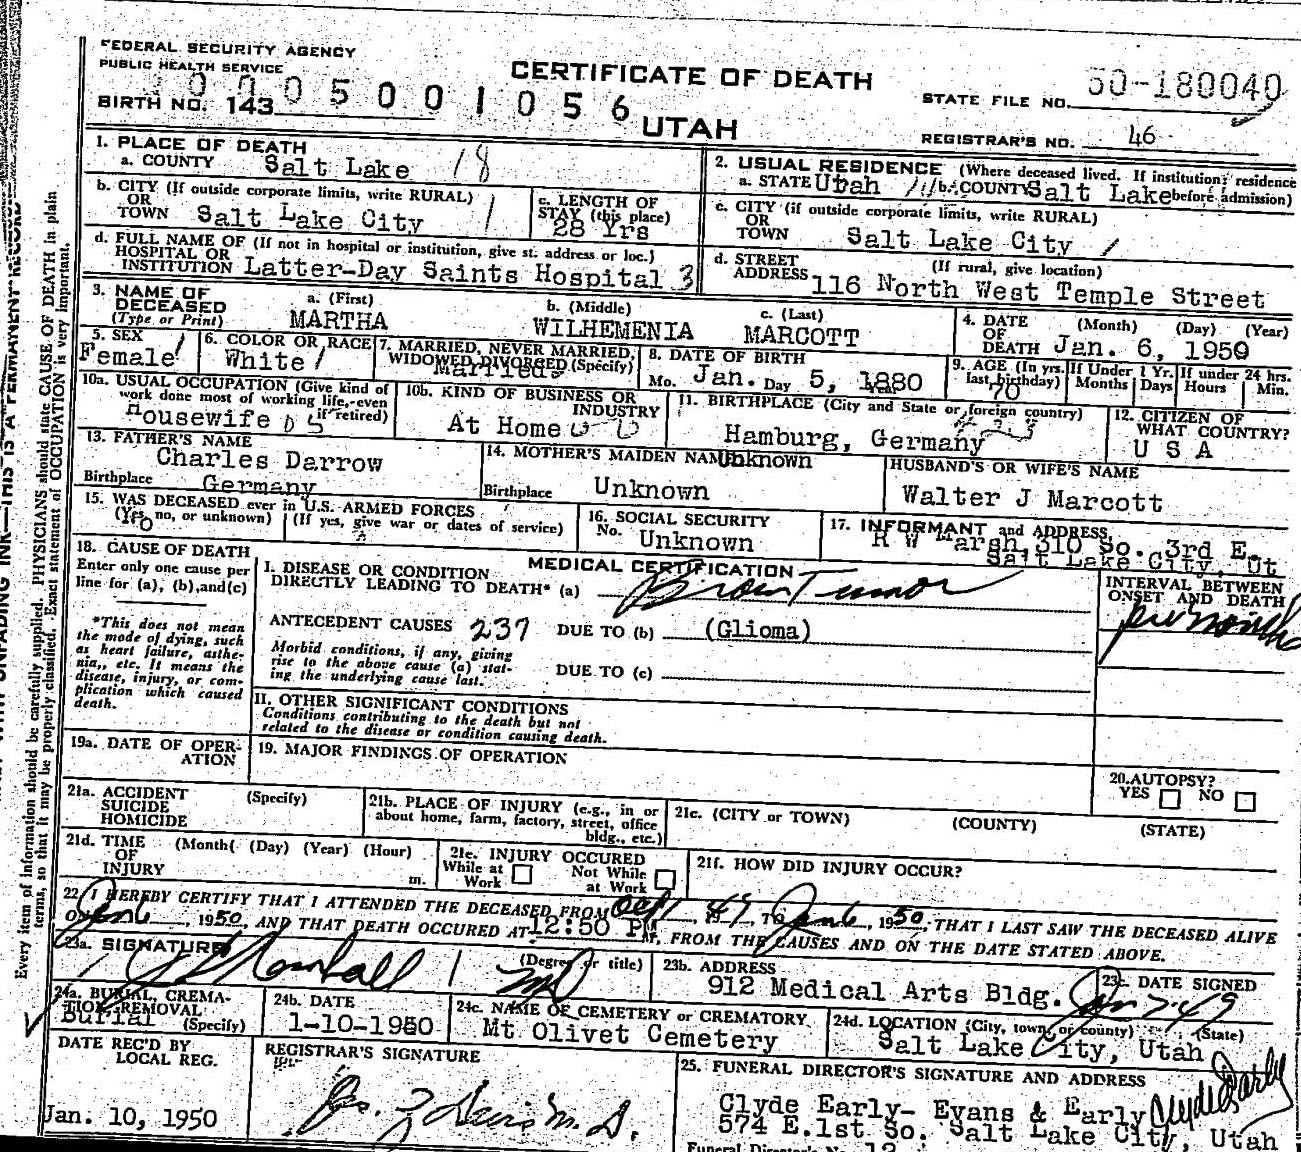 FEDERAL SECURITY AGENCY
PUBLIC HEALTH SERVICE
CERTIFICATE OF DEATH
STATE FILE NO. 50-180040
BIRTH NO. 143
0005001056
UTAH
REGISTRAR'S NO. 46
1. PLACE OF DEATH
a. COUNTY Salt Lake 18
2. USUAL RESIDENCE (Where deceased lived. If institution: residence before admission)
a. STATE Utah b. COUNTY Salt Lake
b. CITY (If outside corporate limits, write RURAL) OR TOWN Salt Lake City 1
c. LENGTH OF STAY (this place) 28 Yrs
c. CITY (if outside corporate limits, write RURAL) OR TOWN Salt Lake City 1
d. FULL NAME OF (If not in hospital or institution, give st. address or loc.) HOSPITAL OR INSTITUTION Latter-Day Saints Hospital 3
d. STREET ADDRESS (If rural, give location) 116 North West Temple Street
3. NAME OF DECEASED (Type or Print)
a. (First) MARTHA
b. (Middle) WILHEMENIA
c. (Last) MARCOTT
4. DATE OF DEATH (Month) (Day) (Year) Jan. 6, 1950
5. SEX Female 1
6. COLOR OR RACE White 1
7. MARRIED, NEVER MARRIED, WIDOWED, DIVORCED (Specify) Married
8. DATE OF BIRTH Mo. Jan. Day 5, Year 1880
9. AGE (In yrs. last birthday) 70
If Under 1 Yr. Months Days
If under 24 hrs. Hours Min.
10a. USUAL OCCUPATION (Give kind of work done most of working life, even if retired) Housewife
10b. KIND OF BUSINESS OR INDUSTRY At Home
11. BIRTHPLACE (City and State or foreign country) Hamburg, Germany
12. CITIZEN OF WHAT COUNTRY? U S A
13. FATHER'S NAME Charles Darrow
Birthplace Germany
14. MOTHER'S MAIDEN NAME Unknown
Birthplace Unknown
HUSBAND'S OR WIFE'S NAME
Walter J Marcott
15. WAS DECEASED ever in U.S. ARMED FORCES
(Yes, no, or unknown) No (If yes, give war or dates of service)
16. SOCIAL SECURITY No. Unknown
17. INFORMANT and ADDRESS,
R W Marsh, 310 So. 3rd E.
Salt Lake City, Ut
18. CAUSE OF DEATH
Enter only one cause per line for (a), (b), and (c)
*This does not mean the mode of dying, such as heart failure, asthenia, etc. It means the disease, injury, or complication which caused death.
MEDICAL CERTIFICATION
I. DISEASE OR CONDITION DIRECTLY LEADING TO DEATH* (a) Brain Tumor
INTERVAL BETWEEN ONSET AND DEATH
months
ANTECEDENT CAUSES 237 DUE TO (b) (Glioma)
Morbid conditions, if any, giving rise to the above cause (a) stating the underlying cause last.
DUE TO (c)
II. OTHER SIGNIFICANT CONDITIONS
Conditions contributing to the death but not related to the disease or condition causing death.
19a. DATE OF OPERATION
19. MAJOR FINDINGS OF OPERATION
20. AUTOPSY?
YES NO
21a. ACCIDENT SUICIDE HOMICIDE (Specify)
21b. PLACE OF INJURY (e.g., in or about home, farm, factory, street, office bldg., etc.)
21c. (CITY or TOWN) (COUNTY) (STATE)
21d. TIME OF INJURY (Month) (Day) (Year) (Hour) m.
21e. INJURY OCCURED
While at Work Not While at Work
21f. HOW DID INJURY OCCUR?
22. I HEREBY CERTIFY THAT I ATTENDED THE DECEASED FROM Oct 1, 1949, TO Jan 6, 1950, THAT I LAST SAW THE DECEASED ALIVE
ON Jan 6, 1950, AND THAT DEATH OCCURED AT 12:50 PM, FROM THE CAUSES AND ON THE DATE STATED ABOVE.
23a. SIGNATURE (Degree or title) MD
23b. ADDRESS 912 Medical Arts Bldg.
23c. DATE SIGNED Jan 7-49
24a. BURIAL, CREMATION, REMOVAL (Specify) Burial
24b. DATE 1-10-1950
24c. NAME OF CEMETERY or CREMATORY Mt Olivet Cemetery
24d. LOCATION (City, town, or county) (State) Salt Lake City, Utah
DATE REC'D BY LOCAL REG.
Jan. 10, 1950
REGISTRAR'S SIGNATURE
M. D.
25. FUNERAL DIRECTOR'S SIGNATURE AND ADDRESS
Clyde Early- Evans & Early Clyde Early
574 E.1st So. Salt Lake City, Utah
Funeral Director's No. 12
Every item of information should be carefully supplied. PHYSICIANS should state CAUSE OF DEATH in plain
terms, so that it may be properly classified. Exact statement of OCCUPATION is very important.
UNFADING INK—THIS IS A PERMANENT RECORD